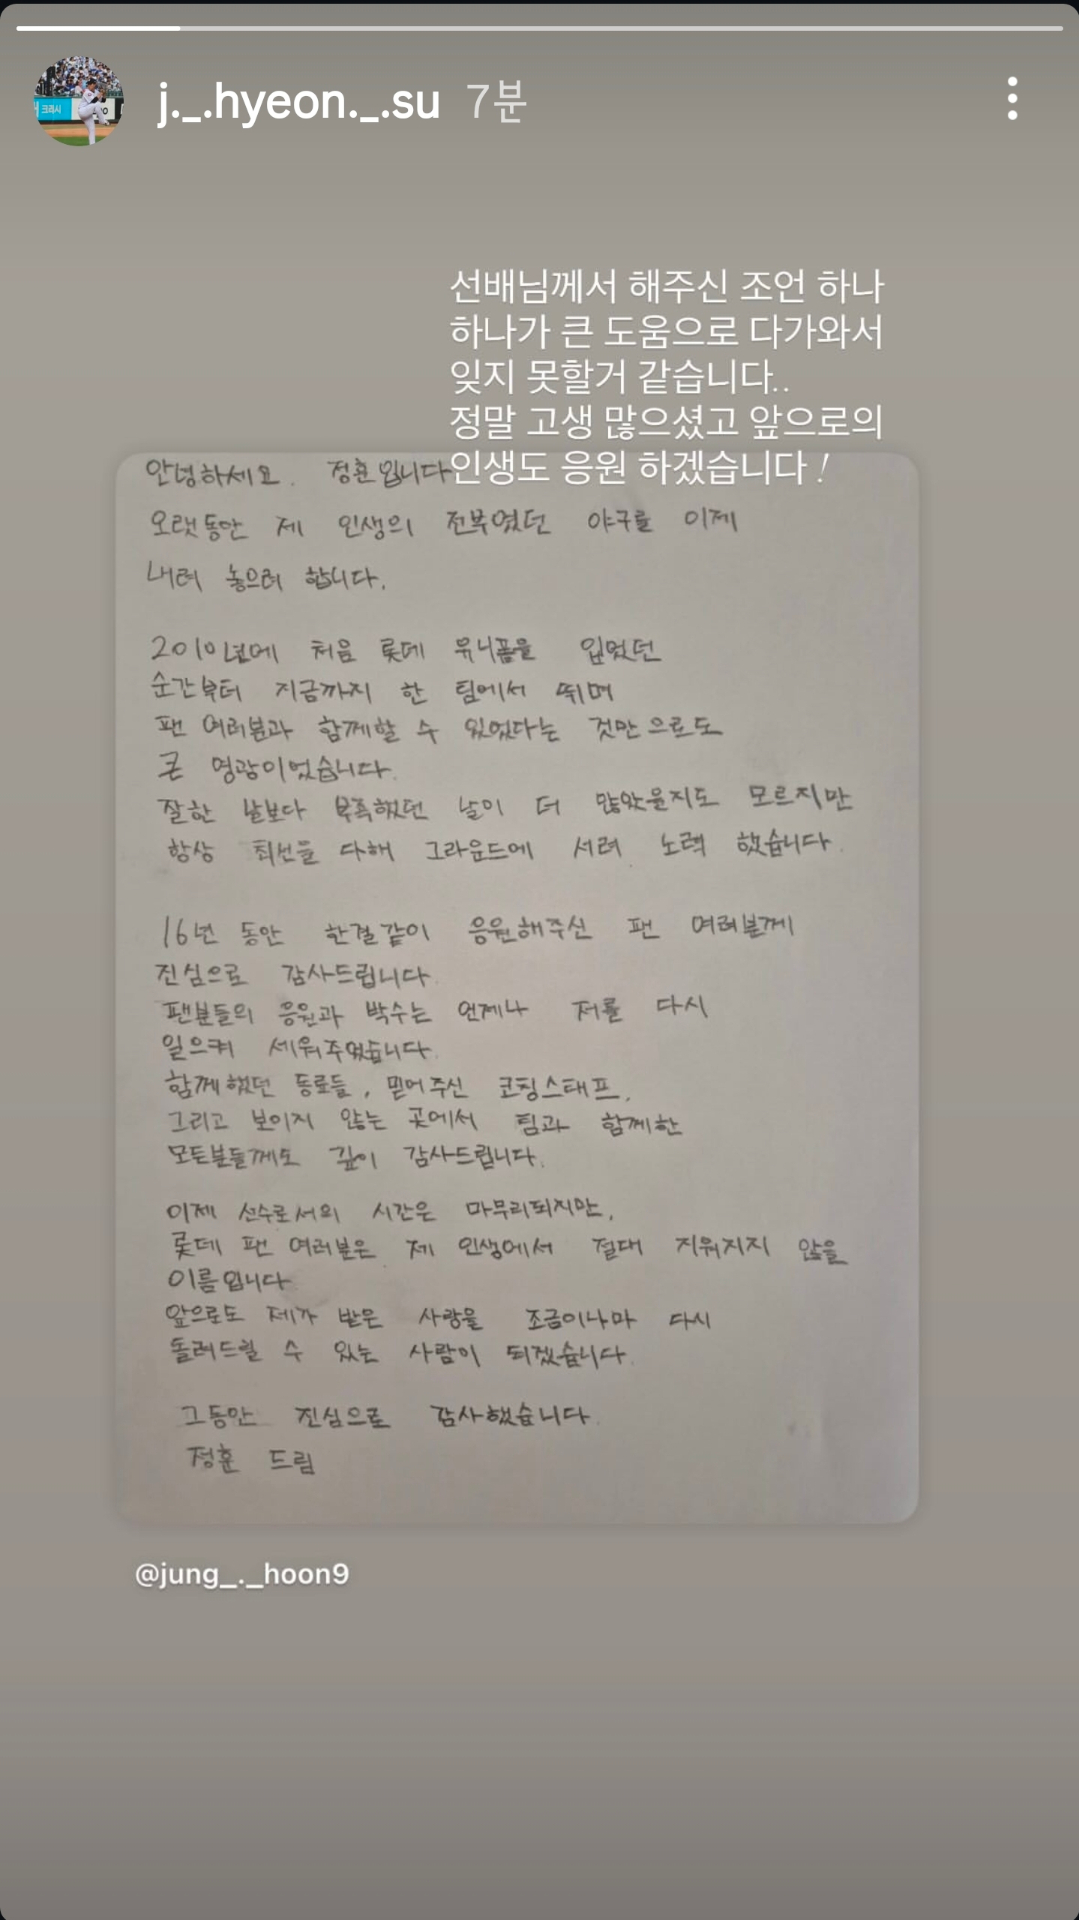 j._.hyeon._.su 7분
선배님께서 해주신 조언 하나
하나가 큰 도움으로 다가와서
잊지 못할거 같습니다..
정말 고생 많으셨고 앞으로의
인생도 응원 하겠습니다 !
안녕하세요. 정훈입니다
오랫동안 제 인생의 전부였던 야구를 이제
내려 놓으려 합니다.
2010년에 처음 롯데 유니폼을 입었던
순간부터 지금까지 한 팀에서 뛰며
팬 여러분과 함께할 수 있었다는 것만으로도
큰 영광이었습니다.
잘한 날보다 부족했던 날이 더 많았을지도 모르지만
항상 최선을 다해 그라운드에 서려 노력 했습니다.
16년 동안 한결같이 응원해주신 팬 여러분께
진심으로 감사드립니다.
팬분들의 응원과 박수는 언제나 저를 다시
일으켜 세워주었습니다.
함께했던 동료들, 믿어주신 코칭스태프,
그리고 보이지 않는 곳에서 팀과 함께한
모든분들께도 깊이 감사드립니다.
이제 선수로서의 시간은 마무리되지만,
롯데 팬 여러분은 제 인생에서 절대 지워지지 않을
이름입니다
앞으로도 제가 받은 사랑을 조금이나마 다시
돌려드릴 수 있는 사람이 되겠습니다.
그동안 진심으로 감사했습니다.
정훈 드림
@jung_._hoon9